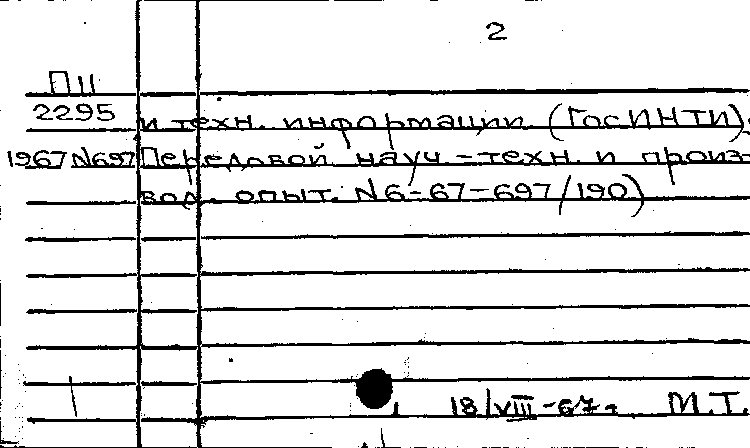 2
П11
2295 и техн. информации (ГосИНТИ).
1967 N697 Передовой науч-техн. и произ-
вод. опыт. N6-67-697/190)
18/VIII-67г. М.Т.